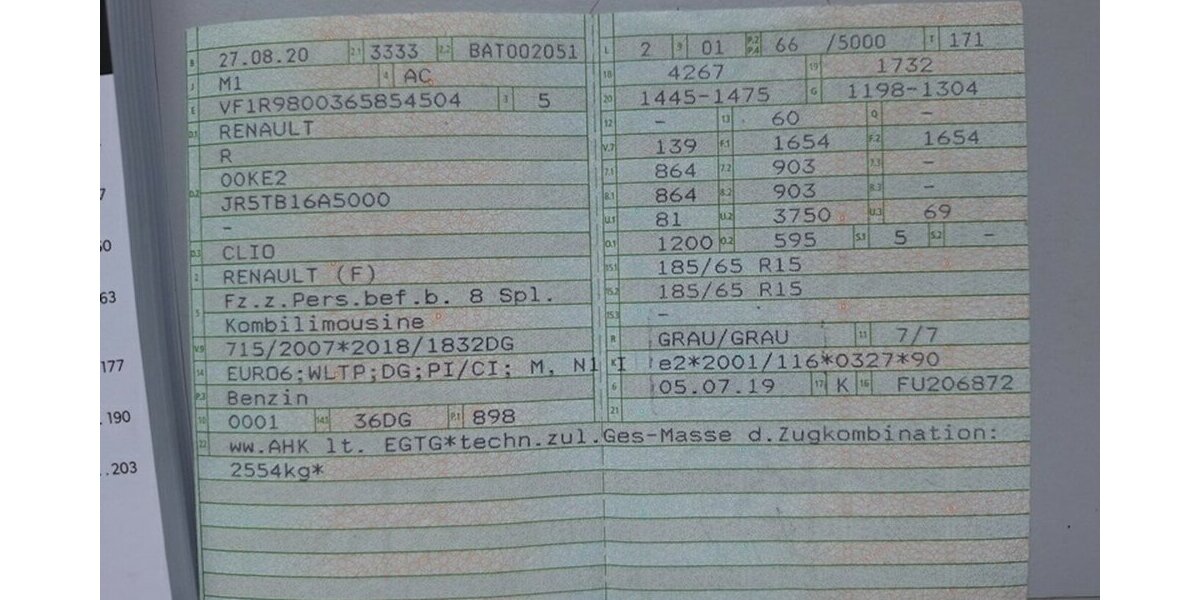 B 27.08.20 2.1 3333 2.2 BAT002051
J M1 4 AC
E VF1R9800365854504 3 5
D.1 RENAULT
R
D.2 00KE2
JR5TB16A5000
-
D.3 CLIO
2 RENAULT (F)
5 Fz.z.Pers.bef.b. 8 Spl.
Kombilimousine
V.9 715/2007*2018/1832DG
14 EURO6;WLTP;DG;PI/CI; M, N1 I
P.3 Benzin
10 0001 14.1 36DG P.1 898
22 ww.AHK lt. EGTG*techn.zul.Ges-Masse d.Zugkombination:
2554kg*
L 2 9 01 P.2 P.4 66 /5000 T 171
18 4267 19 1732
20 1445-1475 G 1198-1304
12 - 13 60 Q -
V.7 139 F.1 1654 F.2 1654
7.1 864 7.2 903 7.3 -
8.1 864 8.2 903 8.3 -
U.1 81 U.2 3750 U.3 69
O.1 1200 O.2 595 S.1 5 S.2 -
15.1 185/65 R15
15.2 185/65 R15
15.3 -
R GRAU/GRAU 11 7/7
K e2*2001/116*0327*90
6 05.07.19 17 K 16 FU206872
21
7
60
63
177
190
..203